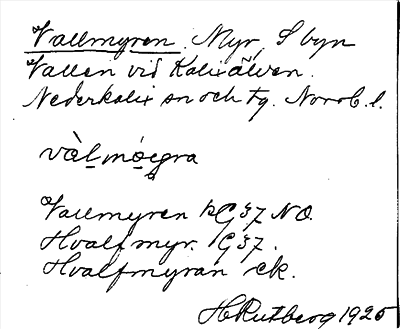 Vallmyren. Myr, S byn
Vallen vid Kalixälven.
Nederkalix sn och tg. Norrb. l.
vàl̠mo̠i̯gra
Vallmyren kG 37 NO.
Hvalfmyr. G 37.
Hvalfmyran ek.
H Rutberg 1925